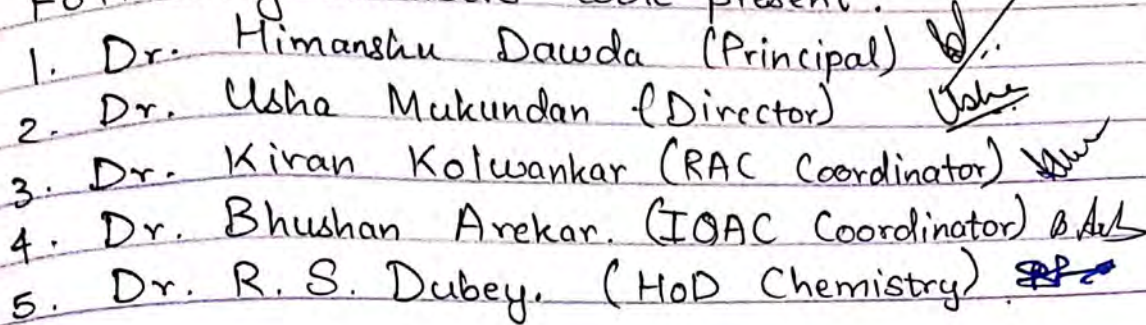 present.
1. Dr. Himanshu Dawda (Principal)
2. Dr. Usha Mukundan (Director) Usha
3. Dr. Kiran Kolwankar (RAC Coordinator)
4. Dr. Bhushan Arekar. (IQAC Coordinator)
5. Dr. R. S. Dubey. (HoD Chemistry)